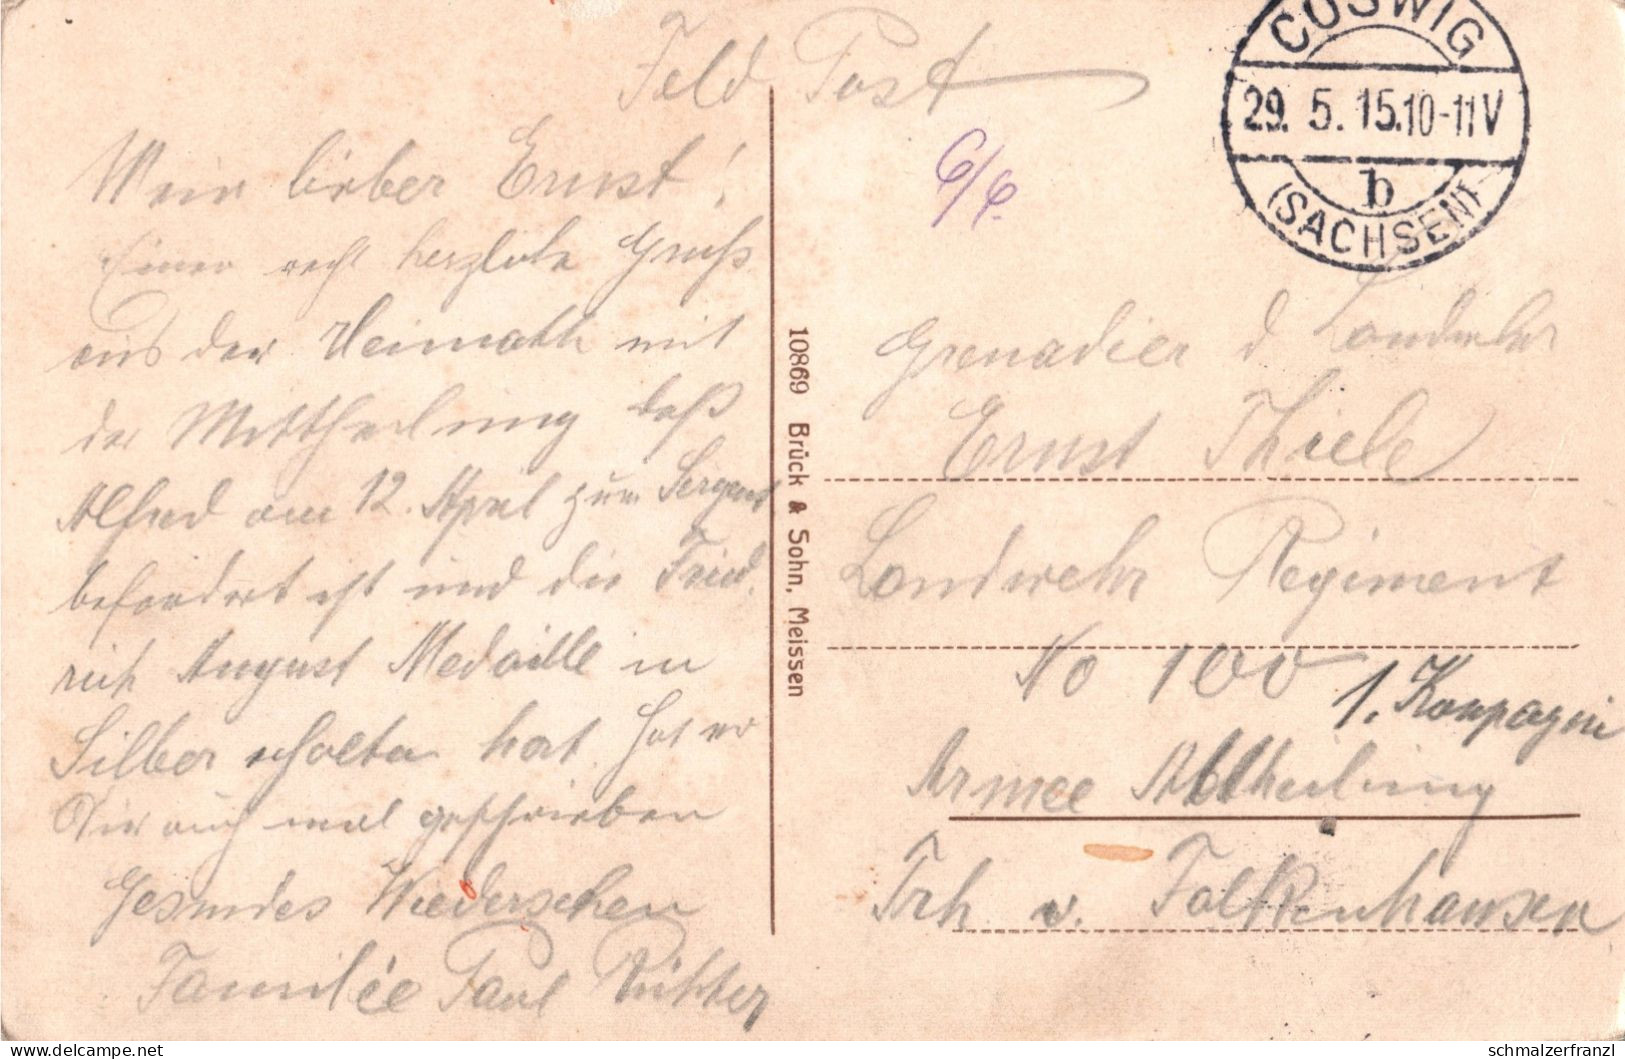 Feld Post
COSWIG
29. 5. 15.10-11V
b
(SACHSEN)
6/6.
Mein lieber Ernst!
Einen recht herzliche Gruß
aus der Heimath mit
der Mittheilung daß
Alfred am 12. April zum Sergent
befördert ist und die Fried.
rich August Medaille in
Silber erhalten hat. Hat er
Dir auch mal geschrieben
Gesundes Wiedersehen
Familie Paul
10869 Brück & Sohn, Meissen
Grenadier d Landwehr
Ernst Thiele
Landwehr Regiment
No 100
1. Kompagnie
Armee Abtheilung
Frh v. Falkenhausen
DELCAMPE.NET
schmalzerfranzl